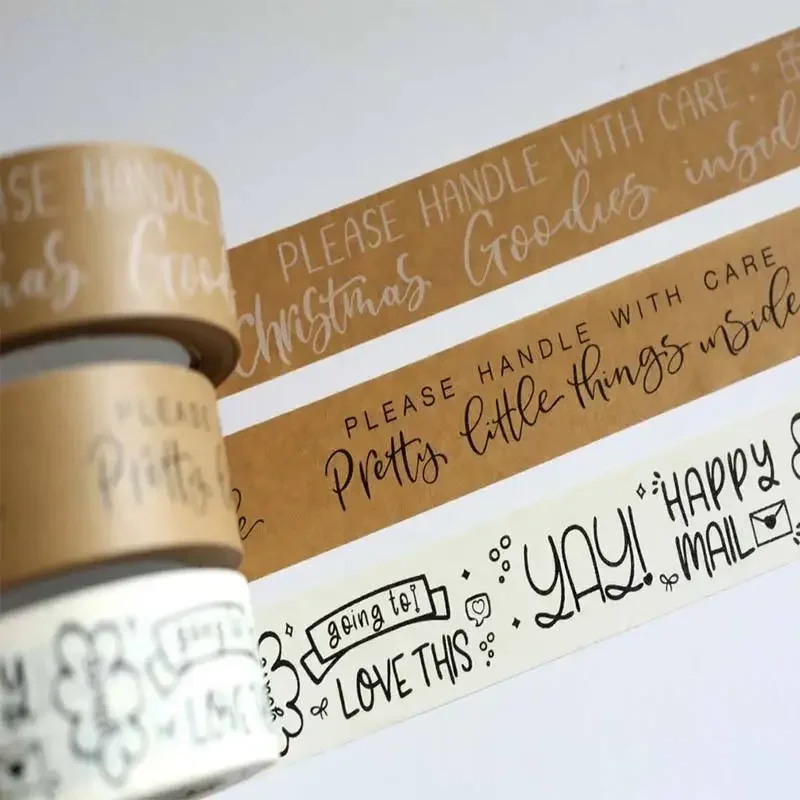 PLEASE HANDLE WITH CARE
Christmas Goodies inside
PLEASE HANDLE WITH CARE
Pretty little things inside
going to!
LOVE THIS
YAY!
HAPPY
MAIL
PLEASE
Pretty
going to
LOVE T